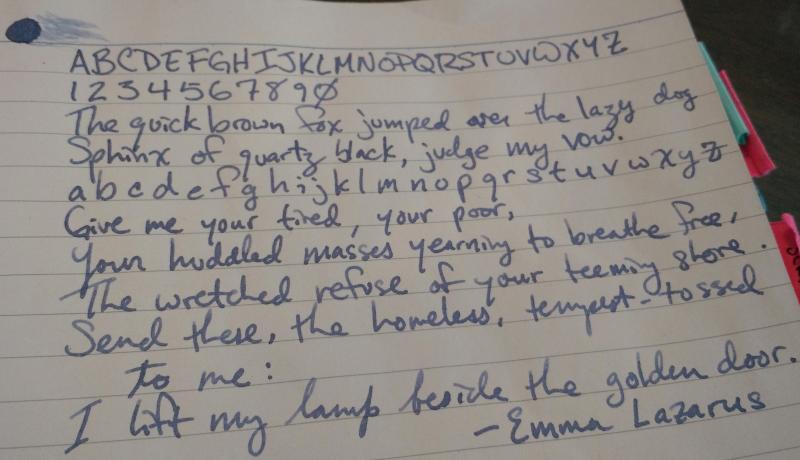 ABCDEFGHIJKLMNOPQRSTUVWXYZ
1234567890
The quick brown fox jumped over the lazy dog
Sphinx of quartz black, judge my vow.
a b c d e f g h i j k l m n o p q r s t u v w x y z
Give me your tired, your poor,
Your huddled masses yearning to breathe free,
The wretched refuse of your teeming shore.
Send these, the homeless, tempest-tossed
to me:
I lift my lamp beside the golden door.
-Emma Lazarus